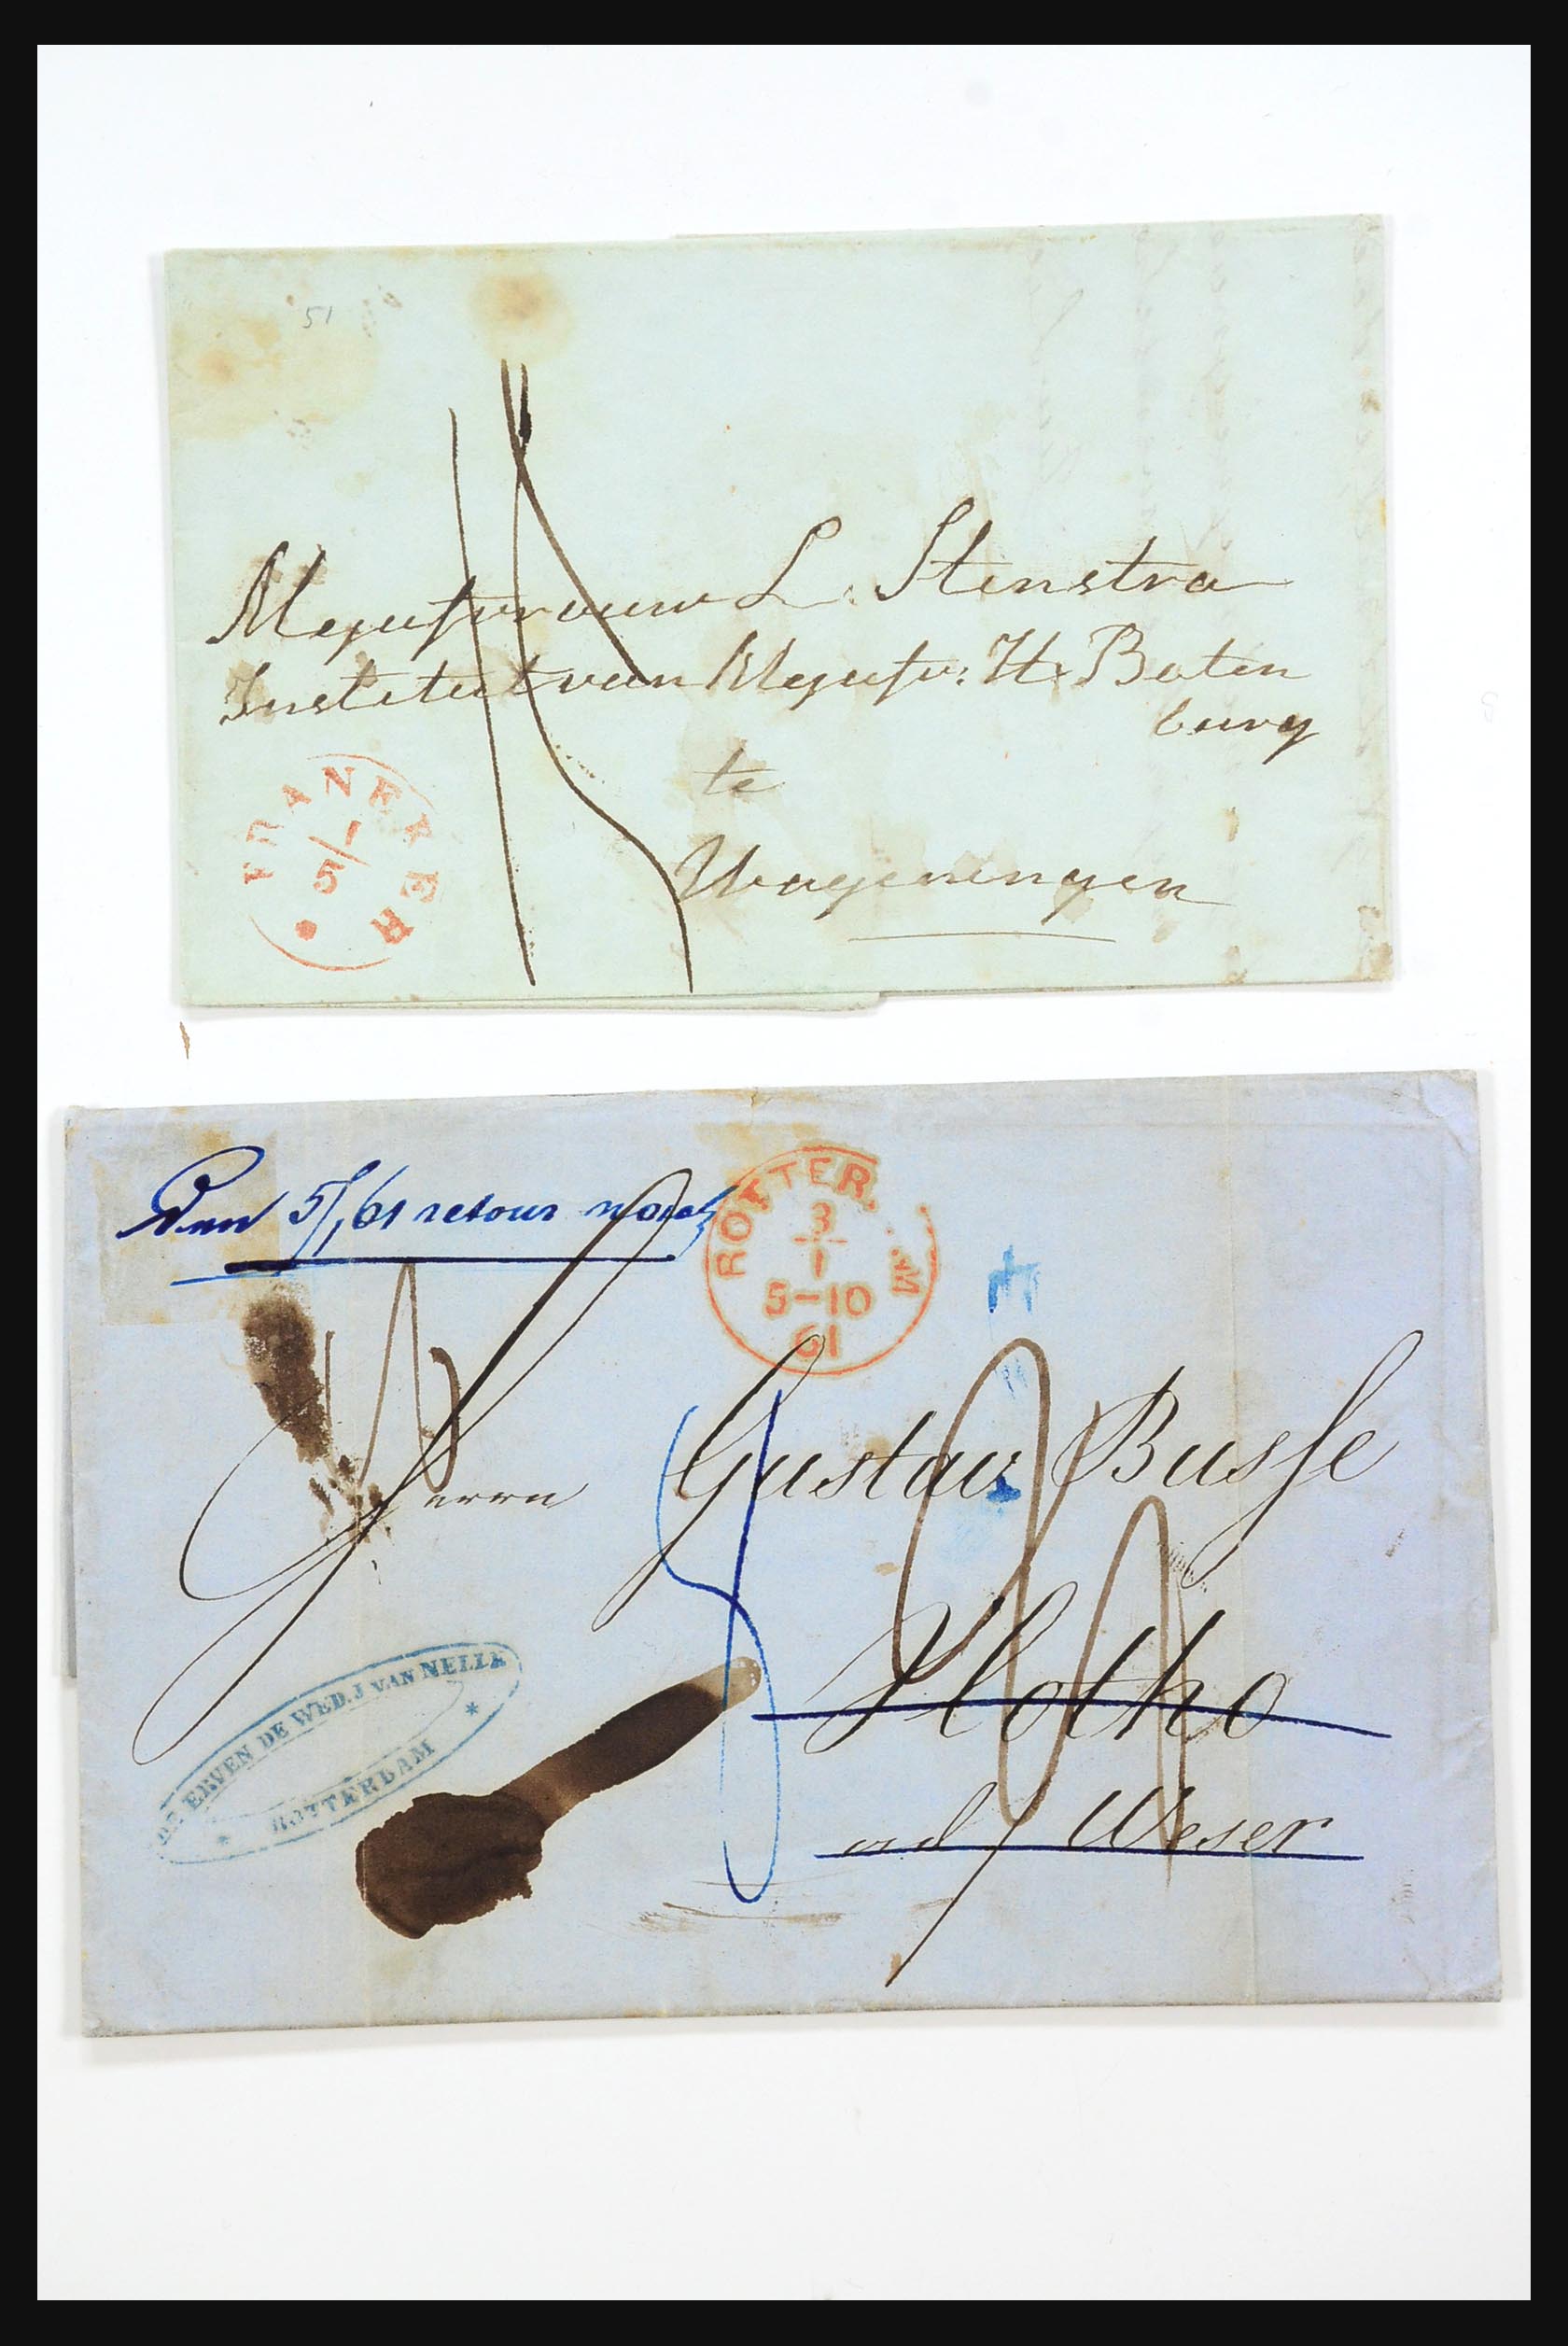 51
Mejufvrouw L. Stenstra
Instituut van Mejufv: H. Baten
burg
te
Wageningen
FRANEKER
5/1
Den 5/1 61 retour
ROTTER..AM
3
1
5-10
61
Herrn Gustav Busse
Vlotho
a/d Weser
DE ERVEN DE WED. J. VAN NELLE
ROTTERDAM